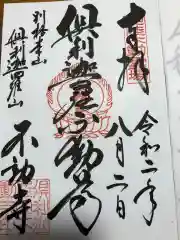 奉拝
令和二年
八月二日
倶利迦羅不動尊
別格本山
倶利迦羅山
不動寺